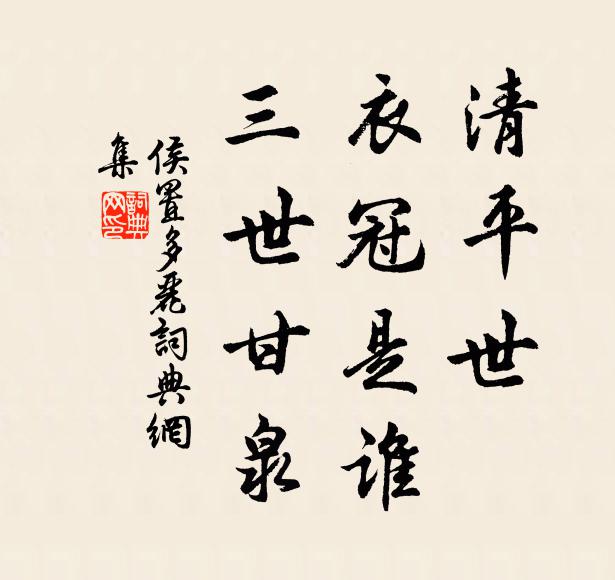 清平世
衣冠是誰
三世甘泉
侯置多麗詞典網
集
詞典網印